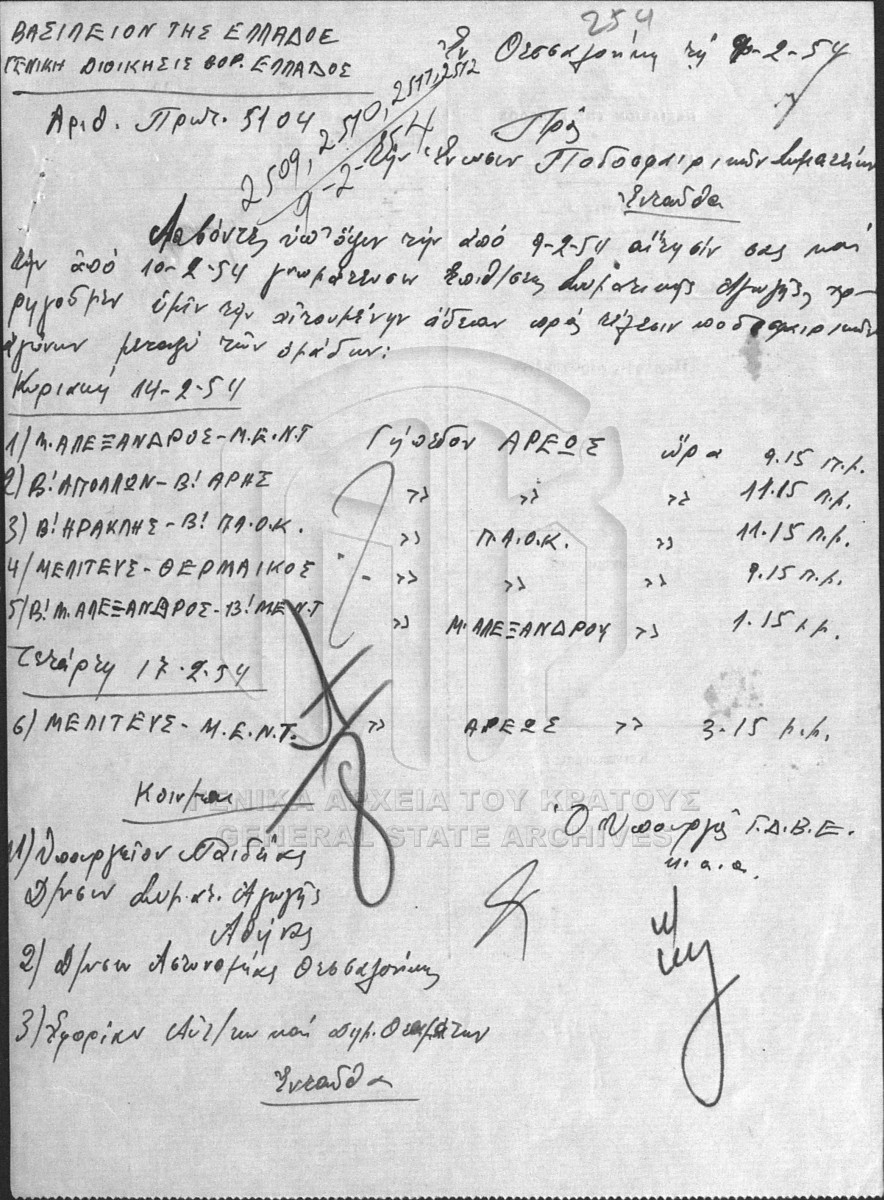 254
ΒΑΣΙΛΕΙΟΝ ΤΗΣ ΕΛΛΑΔΟΣ
ΓΕΝΙΚΗ ΔΙΟΙΚΗΣΙΣ ΒΟΡ. ΕΛΛΑΔΟΣ
Ἐν Θεσσαλονίκῃ τῇ -2-54
Ἀριθ. Πρωτ. 5104
2509, 2510, 2511, 2512
9-2-54
Πρός
Τὴν Ἕνωσιν Ποδοσφαιρικῶν Σωματείων
Ἐνταῦθα
Λαβόντες ὑπ' ὄψιν τὴν ἀπό 9-2-54 αἴτησίν σας καί
τὴν ἀπό 10-2-54 γνωμάτευσιν Ἐπιθ/σεως Σωματικῆς Ἀγωγῆς, χο-
ρηγοῦμεν ὑμῖν τὴν αἰτουμένην ἄδειαν πρός τέλεσιν ποδοσφαιρικῶν
ἀγώνων μεταξύ τῶν ὁμάδων:
Κυριακή 14-2-54
1) Μ. ΑΛΕΞΑΝΔΡΟΣ - Μ.Ε.Ν.Τ Γήπεδον ΑΡΕΩΣ ὥρα 9.15 π.μ.
2) Β! ΑΠΟΛΛΩΝ - Β! ΑΡΗΣ >> >> >> 11.15 π.μ.
3) Β! ΗΡΑΚΛΗΣ - Β! ΠΑ.Ο.Κ. >> Π.Α.Ο.Κ. >> 11.15 π.μ.
4) ΜΕΛΙΤΕΥΣ - ΘΕΡΜΑΙΚΟΣ - >> >> >> 9.15 π.μ.
5) Β! Μ. ΑΛΕΞΑΝΔΡΟΣ - Β! ΜΕΝΤ >> Μ. ΑΛΕΞΑΝΔΡΟΥ >> 1.15 μ.μ.
Τετάρτη 17-2-54
6) ΜΕΛΙΤΕΥΣ - Μ.Ε.Ν.Τ. >> ΑΡΕΩΣ >> 3-15 μ.μ.
Κοιν/ται
Ὁ Ὑπουργός Γ.Δ.Β.Ε.
κ.α.α.
1) Ὑπουργεῖον Παιδείας
Δ/νσιν Σωματ. Ἀγωγῆς
Ἀθήνας
2) Δ/νσιν Ἀστυνομίας Θεσσαλονίκης
3) Ἐφορίαν Αὐτ/των καί Δημ. Θεαμάτων
Ἐνταῦθα
ΓΕΝΙΚΑ ΑΡΧΕΙΑ ΤΟΥ ΚΡΑΤΟΥΣ
GENERAL STATE ARCHIVES